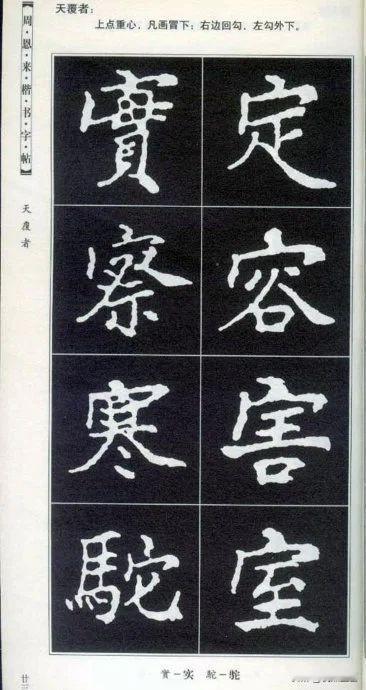 天覆者：
上点重心，凡画冒下；右边回勾，左勾外下。
【周·恩·来·楷·书·字·帖】
天覆者
定容害室
實察寒駝
實－实 駝－驼